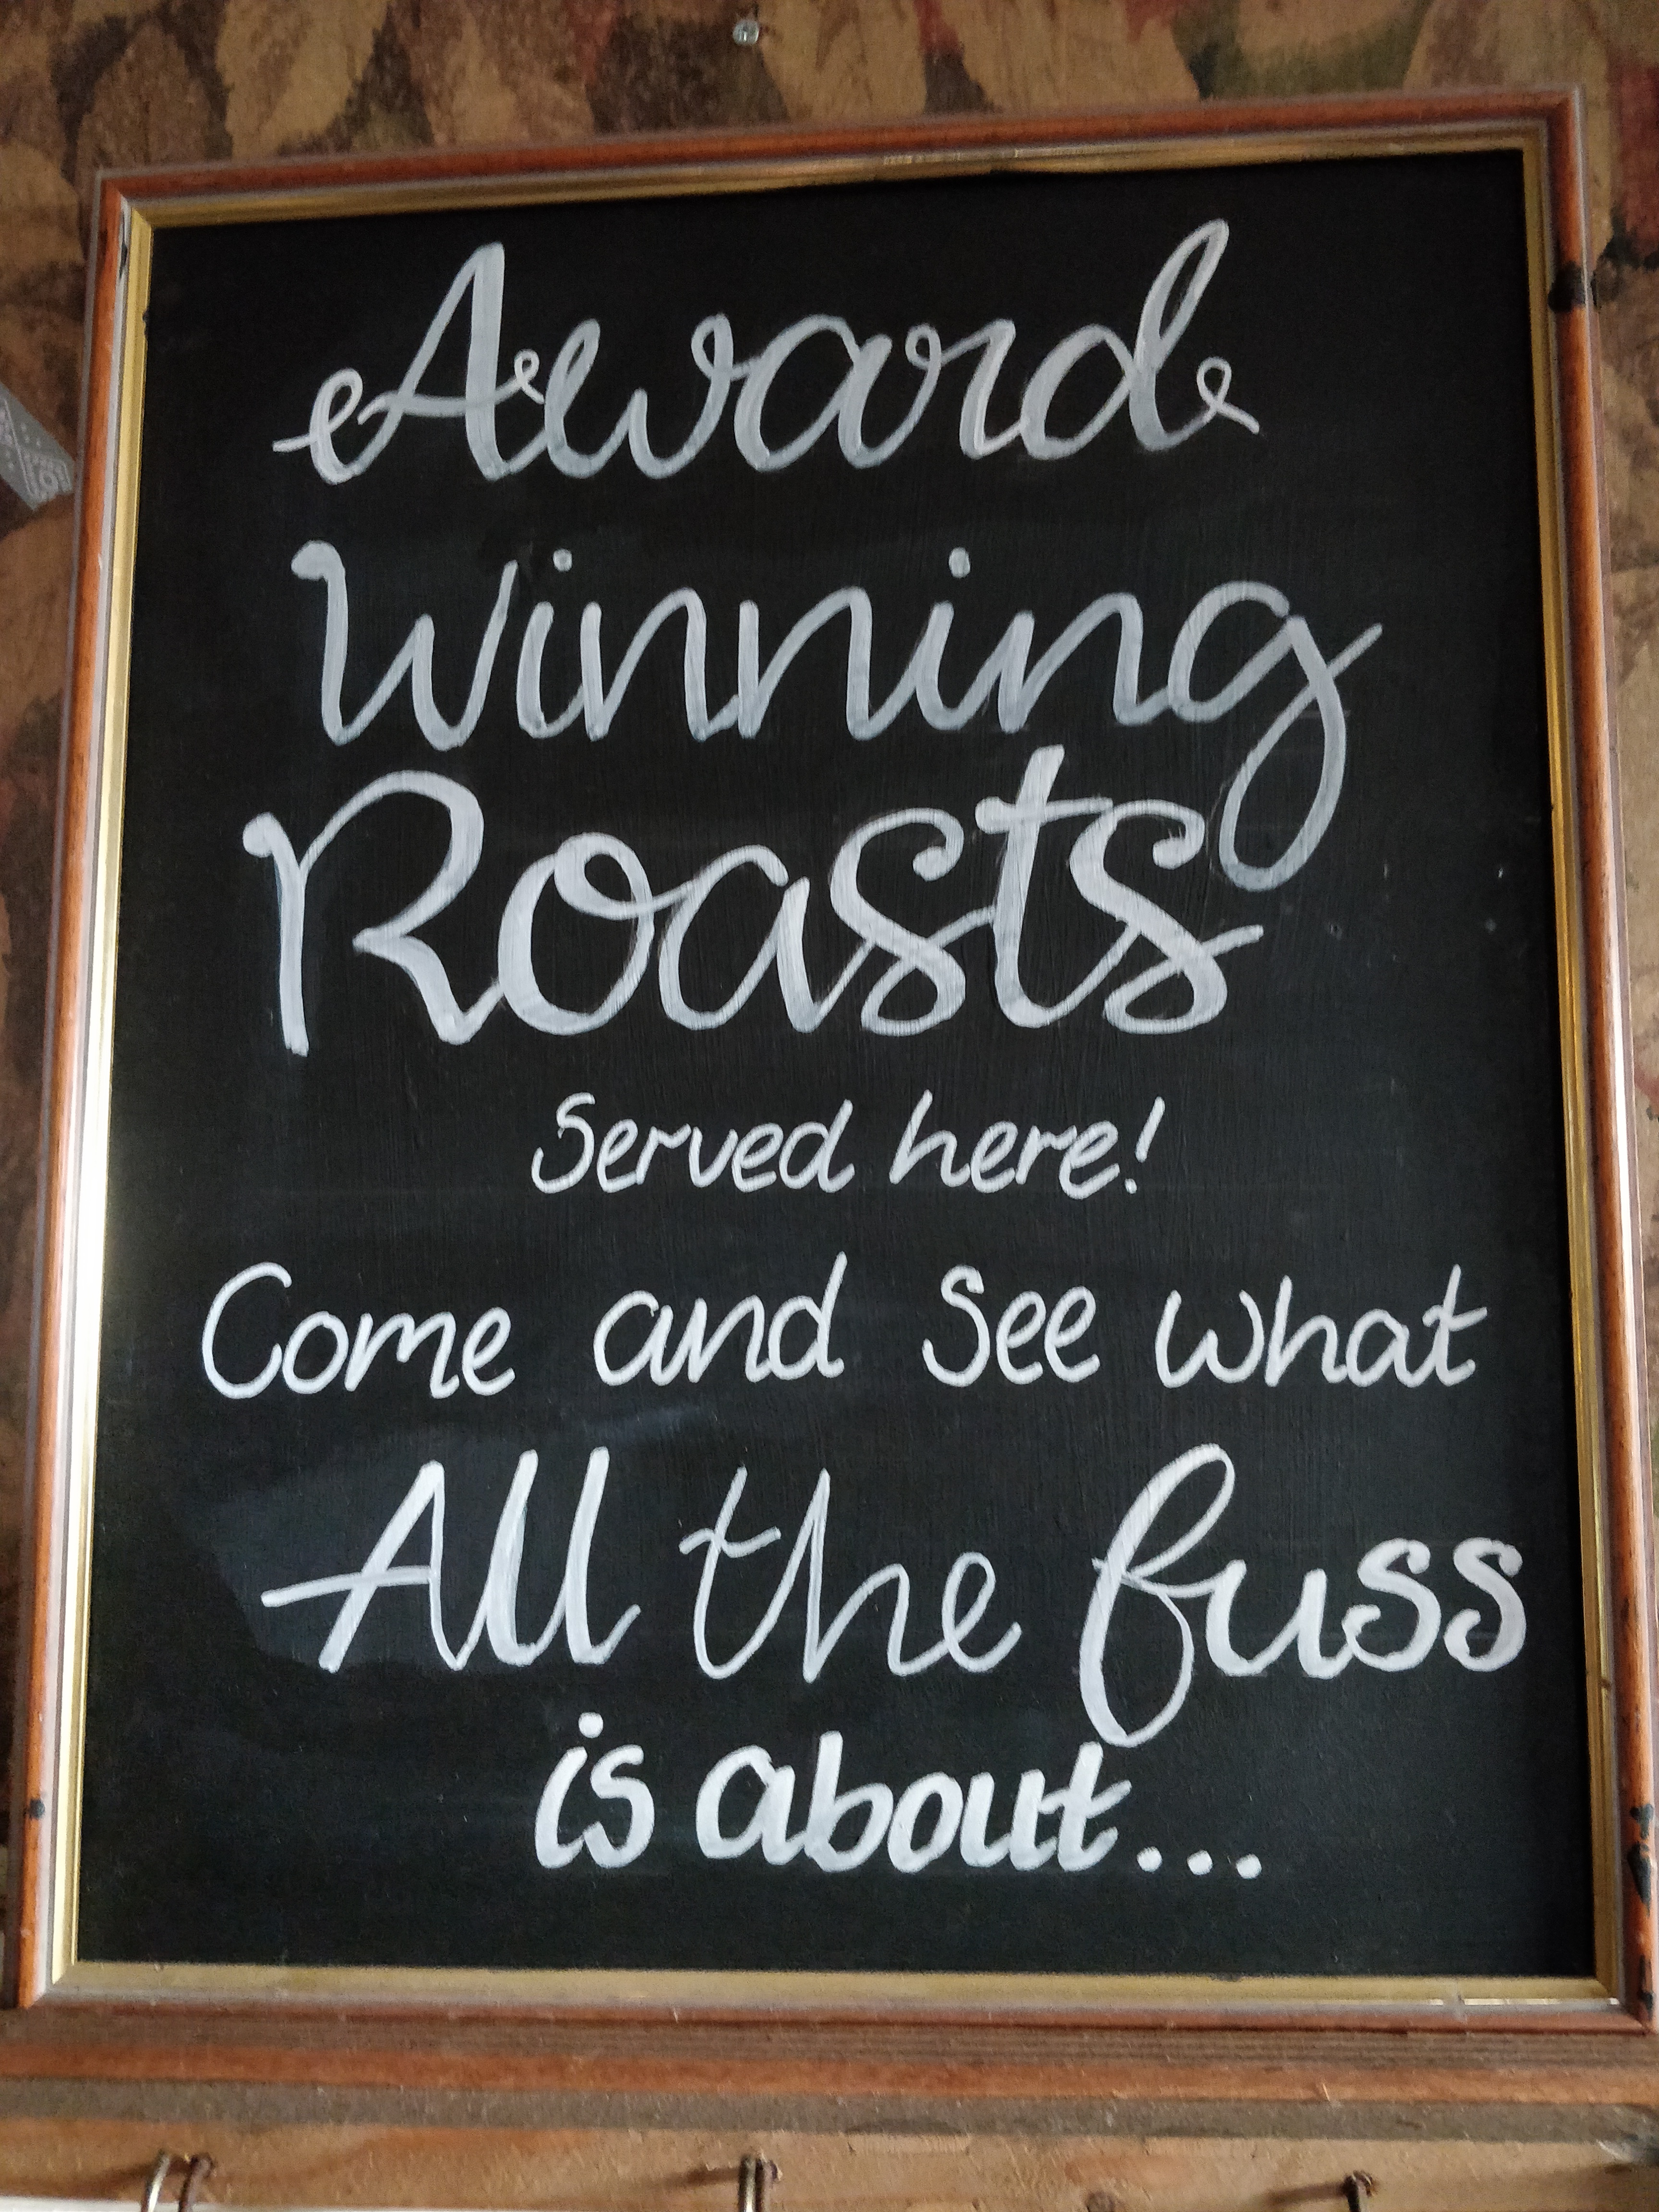 Award
Winning
Roasts
Served here!
Come and See what
All the fuss
is about...